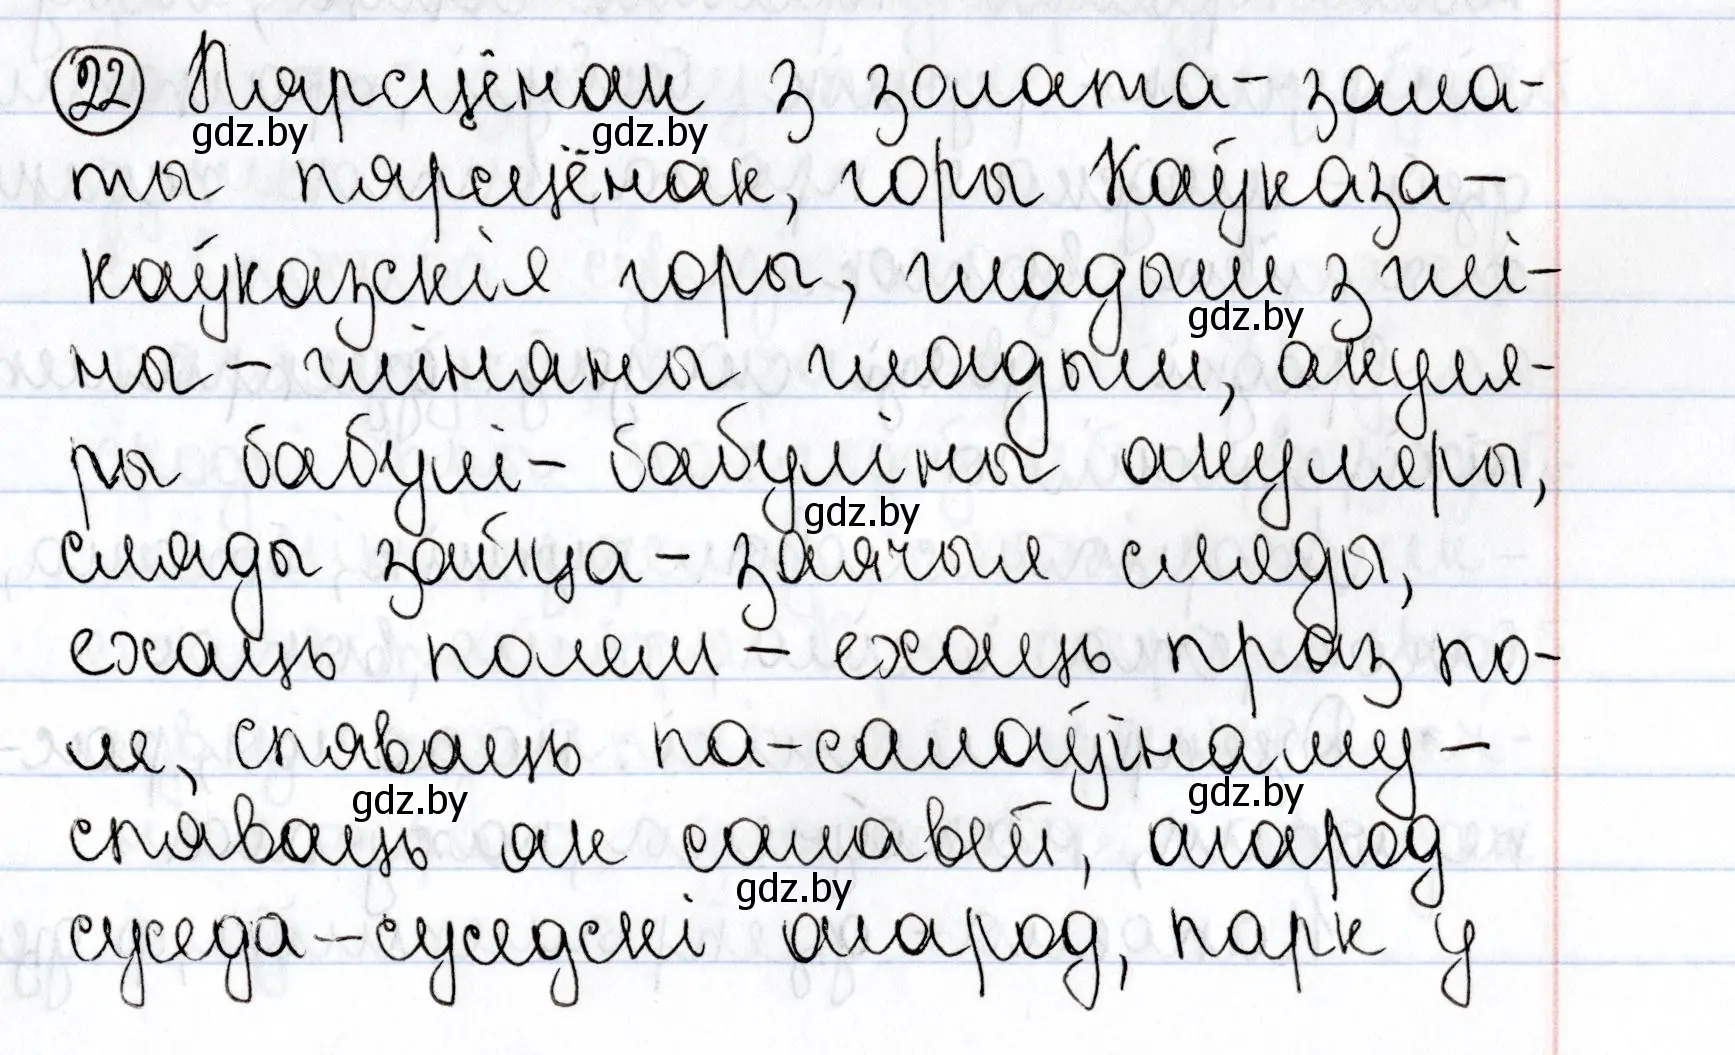 22 Пярсцёнак з золата-зала-
gdz.by gdz.by
ты пярсцёнак, горы Каўказа-
каўказскія горы, гладыш з глі-
gdz.by
ны-гліняны гладыш, акуля-
ры бабулі-бабуліны акуляры,
gdz.by
сляды зайца-заячыя сляды,
ехаць полем-ехаць праз по-
ле, спяваць па-салаўінаму-
gdz.by gdz.by
спяваць як салавей, агарод
gdz.by
суседа-суседскі агарод, парк у